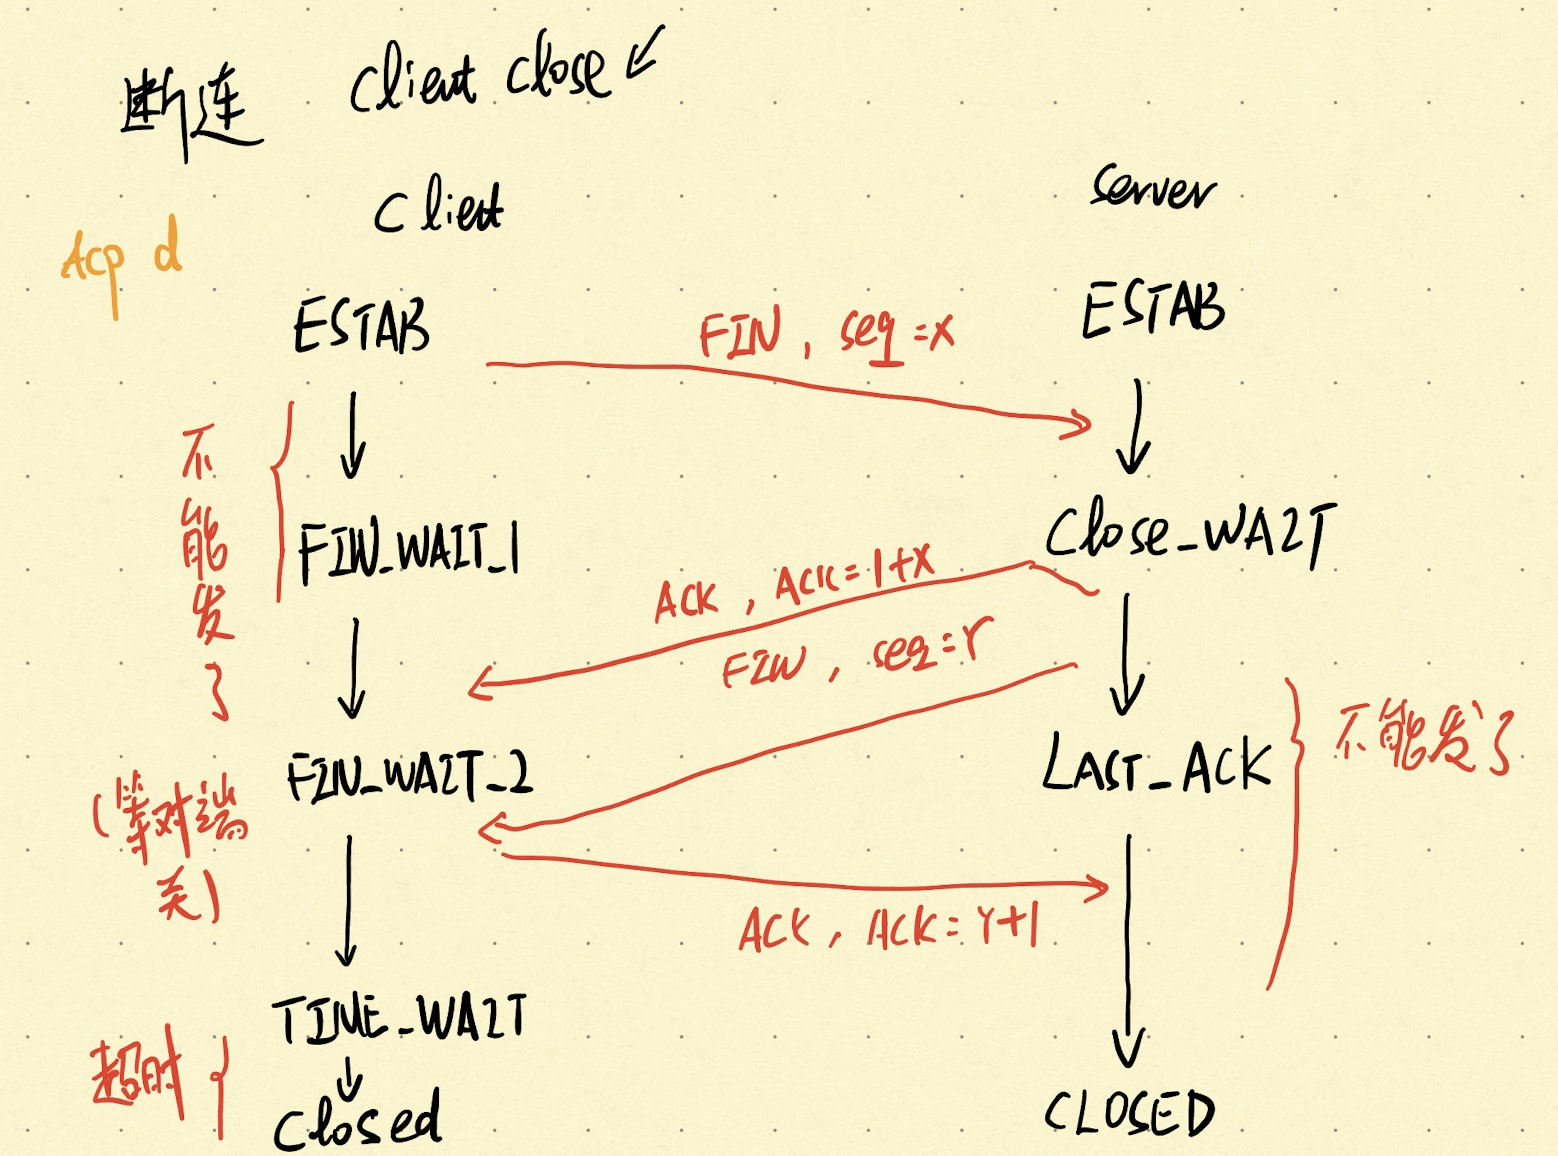 断连 Client Close
Client
Server
Acp d
ESTAB
FIN, seq=x
ESTAB
不能发了
FIN_WAIT_1
Close_WAIT
ACK, ACK=1+x
FIN, seq=Y
FIN_WAIT_2
LAST_ACK
不能发了
(等对端
关)
ACK, ACK=Y+1
TIME_WAIT
超时
Closed
CLOSED